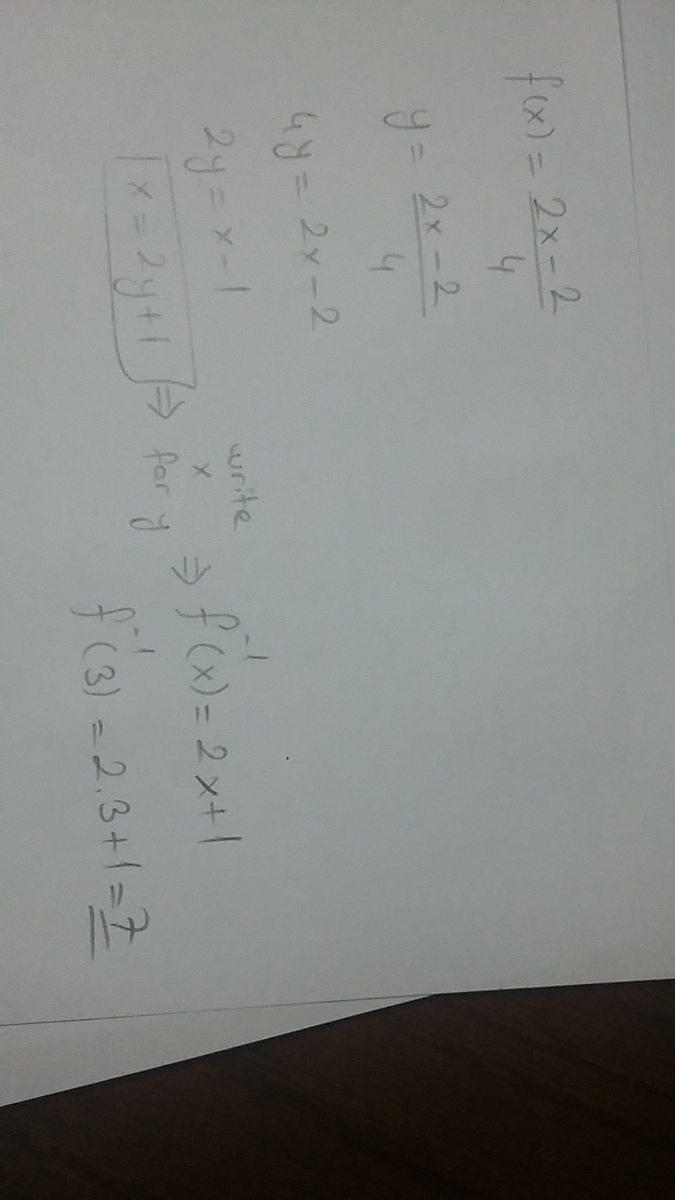 f(x) = 2x - 2 / 4
y = 2x - 2 / 4
4y = 2x - 2
2y = x - 1
x = 2y + 1 ⇒ write x for y ⇒ f⁻¹(x) = 2x + 1
f⁻¹(3) = 2.3 + 1 = 7